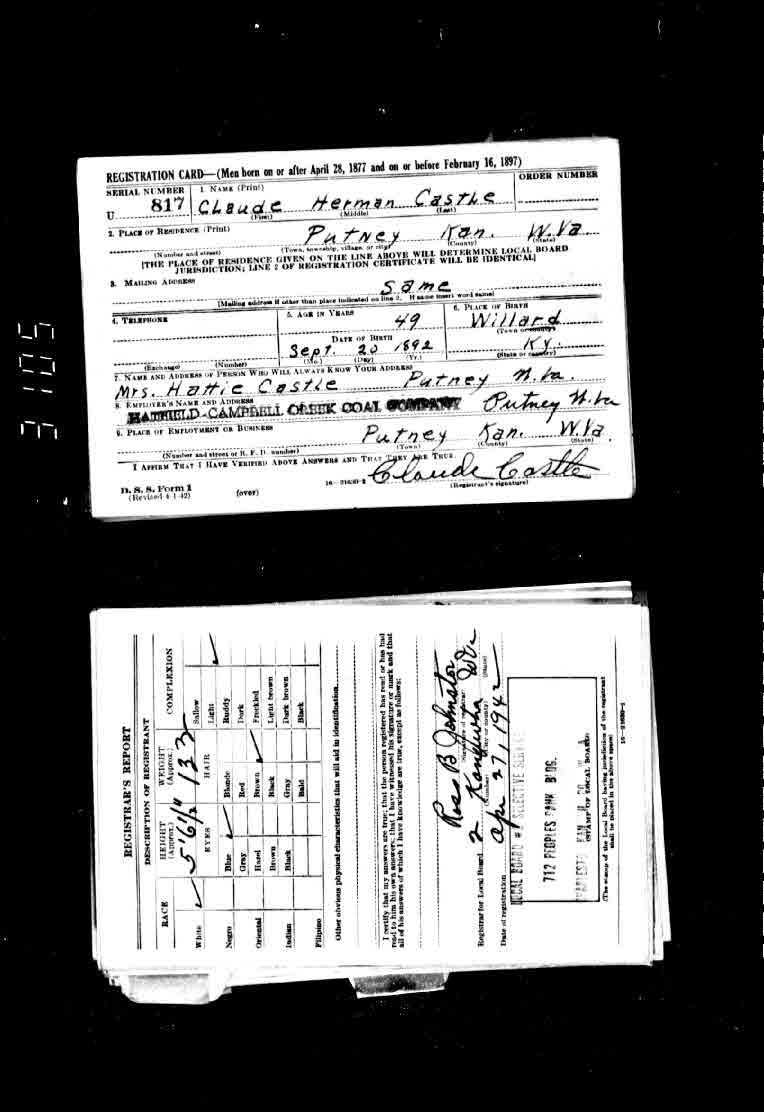 REGISTRATION CARD—(Men born on or after April 28, 1877 and on or before February 16, 1897)
SERIAL NUMBER 1. NAME (Print) ORDER NUMBER
U 817 Claude Herman Castle
(First) (Middle) (Last)
2. PLACE OF RESIDENCE (Print)
Putney Kan. W.Va
(Number and street) (Town, township, village, or city) (County) (State)
[THE PLACE OF RESIDENCE GIVEN ON THE LINE ABOVE WILL DETERMINE LOCAL BOARD
JURISDICTION; LINE 2 OF REGISTRATION CERTIFICATE WILL BE IDENTICAL]
3. MAILING ADDRESS
Same
[Mailing address if other than place indicated on line 2. If same insert word same]
4. TELEPHONE 5. AGE IN YEARS 6. PLACE OF BIRTH
49 Willard
(Town or county)
DATE OF BIRTH
Sept. 20 1892 Ky.
(Exchange) (Number) (Mo.) (Day) (Yr.) (State or country)
7. NAME AND ADDRESS OF PERSON WHO WILL ALWAYS KNOW YOUR ADDRESS
Mrs. Hattie Castle Putney W.Va.
8. EMPLOYER'S NAME AND ADDRESS
HATFIELD-CAMPBELL CREEK COAL COMPANY Putney W.Va
9. PLACE OF EMPLOYMENT OR BUSINESS
Putney Kan. W.Va.
(Number and street or R. F. D. number) (Town) (County) (State)
I AFFIRM THAT I HAVE VERIFIED ABOVE ANSWERS AND THAT THEY ARE TRUE.
Claude Castle
D. S. S. Form 1
(Revised 4-1-42) (over) 16—21630-2 (Registrant's signature)
3105
REGISTRAR'S REPORT
DESCRIPTION OF REGISTRANT
RACE HEIGHT (Approx.) WEIGHT (Approx.) COMPLEXION
5'6½" 133
EYES HAIR
White ✓ Sallow
Light ✓
Negro Blue ✓ Blonde Ruddy
Gray Red Dark
Oriental Hazel Brown ✓ Freckled
Brown Black Light brown
Indian Black Gray Dark brown
Bald Black
Filipino
Other obvious physical characteristics that will aid in identification
I certify that my answers are true; that the person registered has read or has had
read to him his own answers; that I have witnessed his signature or mark and that
all of his answers of which I have knowledge are true, except as follows:
Ross B Johnston
(Signature of registrar)
Registrar for Local Board 2 Kanawha W Va
(Number) (City or county) (State)
Date of registration Apr 27, 1942
LOCAL BOARD SELECTIVE
712 PEOPLES BANK BLDG.
(STAMP OF LOCAL BOARD)
(The stamp of the Local Board having jurisdiction of the registrant
shall be placed in the above space)
16—21630-1